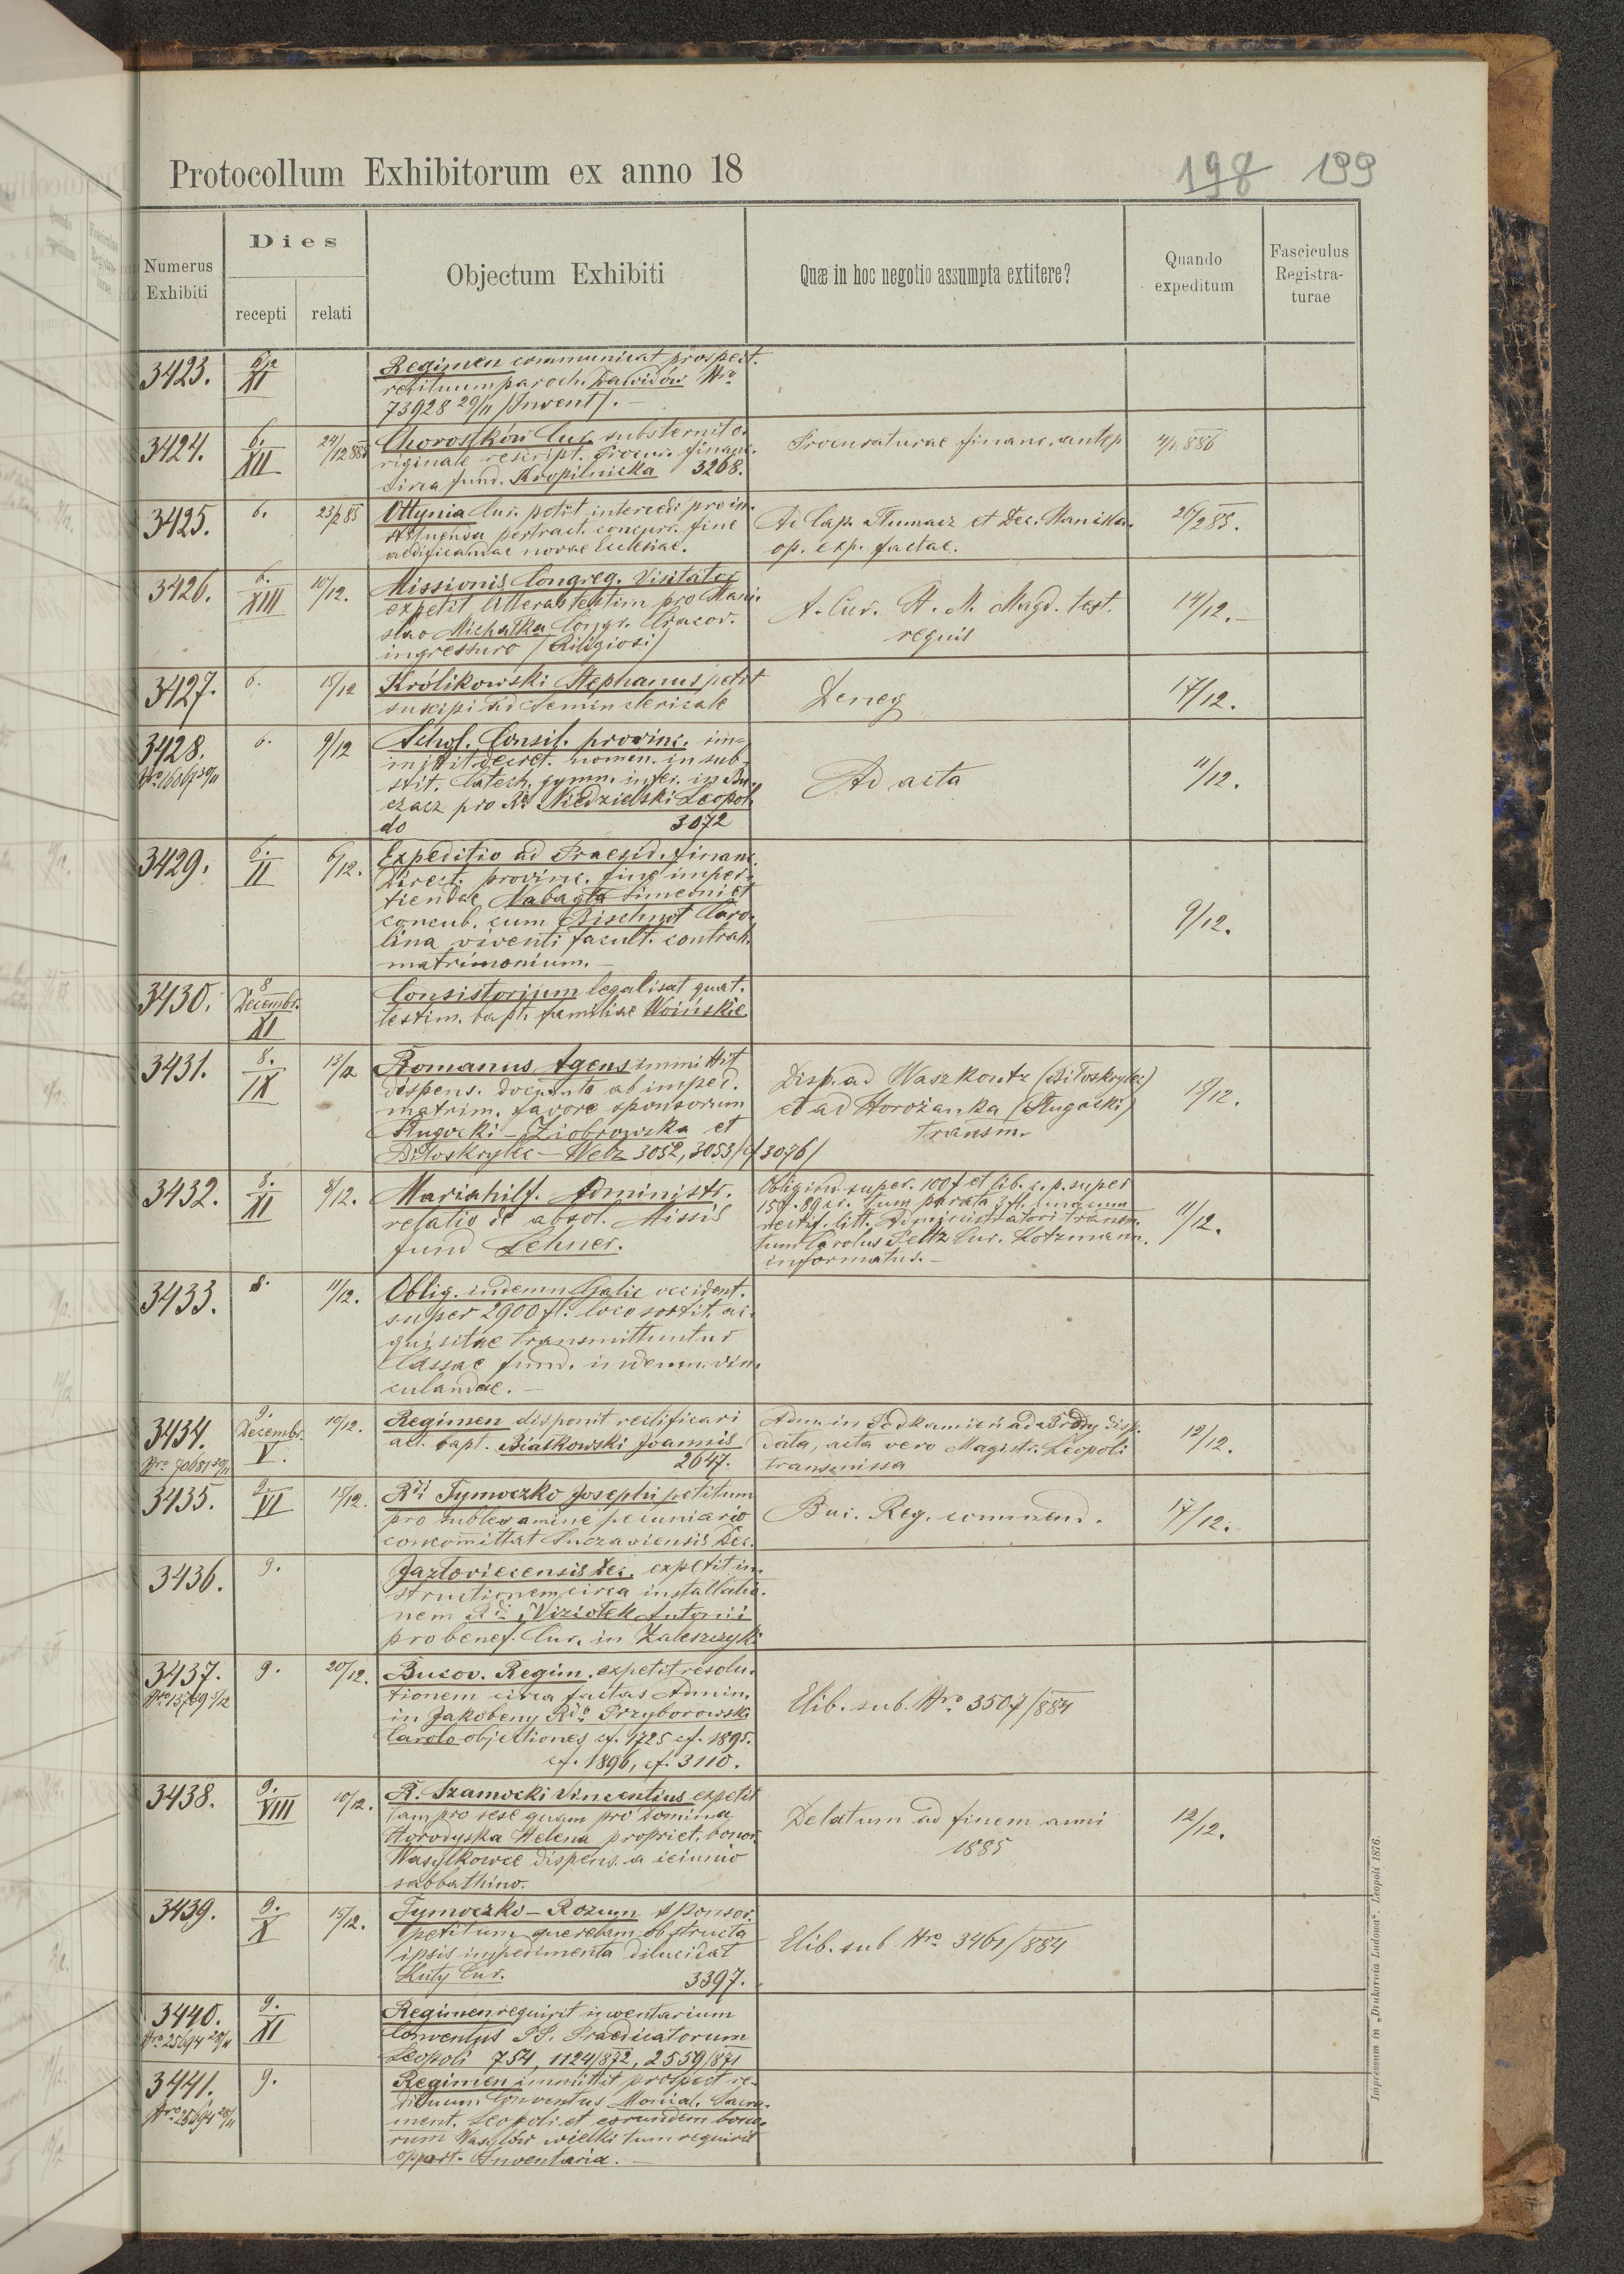 Protocollum Exhibitorum ex anno 18
198 199
Numerus Exhibiti
Dies
recepti
relati
Objectum Exhibiti
Quæ in hoc negotio assumpta extitere?
Quando expeditum
Fasciculus Registra-
turae
3423.
6/12
XI
Regimen communicat prospect.
redituum paroch. Dawidów Nro
73928 29/11 /Invent/.
3424.
6.
XII
24/12 885
Chorostków Cur. substernit o-
riginale rescript. Procur. financ.
circa fund. Kropilnicka 3268.
Procuraturae financ. antep
4/1 886
3425.
6.
23/2 85
Ottynia Cur. petit intercedi pro in-
stituenda pertract. concurr. fine
aedificandae novae Ecclesiae.
Ad Cap. Tłumacz et Dec. Stanisla.
op. exp. factae.
26/2 85.
3426.
6.
XIII
10/12.
Missionis Congreg. Visitator
expetit litteras testim. pro Stani-
slao Michałka Congr. Cracov.
ingressuro /Religiosi/
A. Cur. St. M. Magd. test.
requis
14/12.
3427.
6.
15/12
Królikowski Stephanus petit
suscipi ad Semin clericale
Deneg
17/12.
3428.
6.
9/12
Schol. Consil. provinc. im-
mittit decret. nomen. in sub-
stit. Catech. gymn. infer. in Bu-
czacz pro Rd. Niedzielski Leopol-
do 3072
Ad acta
11/12.
3429.
6.
II
6/12.
Expeditio ad Praesid. financ.
Direct. provinc. fine imper-
tiendae Nabagła Simeoni et
concub. cum Bischnot Caro-
lina viventi facult. contrah.
matrimonium.
9/12.
3430.
8
Decembr.
XI
Consistorium legalisat quat.
testim. bapt. familiae Woińskie
3431.
8.
IX
13/12
Romanus Agens immittit
dispens. documta ab imped.
matrim. favore sponsorum
Ługocki - Ziobrowska et
Biłoskrylec - Welz 3052, 3053 /cf 3076/
Disp. ad Waszkoutz (Biłoskrylec)
et ad Horożanka (Ługocki)
transm.
15/12.
3432.
8.
XI
8/12.
Mariahilf. Administr.
relatio de absol. Missis
fund Lehner.
Oblig ind. super. 100 f et lib. c. p. super
informatus.
11/12.
3433.
8.
11/12.
Oblig. indemn Galic occident.
super 2900 fl. loco sortit. ac-
quisitae transmittuntur
Cassae fund. indemn. vin-
culandae.
3434.
Nro 70681 30/11
9.
Decembr.
V.
10/12.
Regimen disponit rectificari
act. bapt. Białkowski Joannis
2647.
Adm. in Podkamień ad Brody disp.
data, acta vero Magistr. Leopoli
transmissa
12/12.
3435.
9
VI
15/12.
Rdi Tymoczko Josephi petitum
pro sublevamine pecuniario
concommittat Suczaviensis Dec.
Buc. Reg. commend.
17/12.
3436.
9.
Jazłoviecensis Dec. expetit in-
structionem circa installatio-
nem Rdi Wiziołek Antonii
pro benef. Cur. in Zaleszczyki
3437.
Nro 13769 3/12
9.
20/12.
Bucov. Regim. expetit resolu-
tionem circa factas Admin.
in Jakobeny Rdo Przyborowski
Carolo objectiones cf. 1725 cf. 1895.
cf. 1896, cf. 3110.
Elib. sub. Nro 3507/884
3438.
9.
VIII
10/12.
R. Szamocki Vincentius expetit
tam pro sese quam pro Domina
Horodyska Helena propriet. bonor.
Wasylkowce dispens. a ieiunio
sabbathino.
Delatum ad finem anni
1885
12/12.
3439.
9.
X
15/12.
Tymoczko - Rozum sponsor.
petitum querelam obstructa
ipsis impedimenta dilucidat
Kuty Cur. 3397.
Elib. sub Nro 3461/884
3440.
Nro 25694 28/11
9.
XI
Regimen requirit inventarium
Conventus PP. Praedicatorum
Leopoli 754, 1124/872, 2559/871
3441.
Nro 25694 28/11
9.
Regimen immittit prospect re-
dituum Conventus Monial. Sacra-
ment. Leopoli et eorundem bono-
rum Wasylów wielki tum requirit
opport. Inventaria.
Impressum in „Drukarnia Ludowa“. Leopoli 1876.